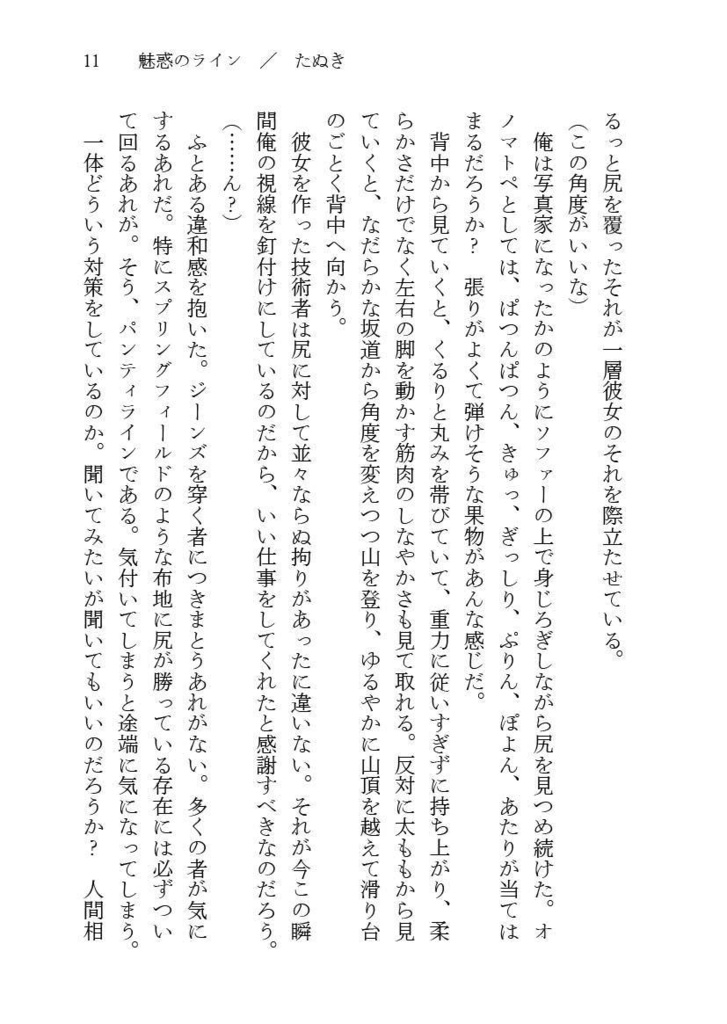 11　魅惑のライン　／　たぬき
るっと尻を覆ったそれが一層彼女のそれを際立たせている。
（この角度がいいな）
　俺は写真家になったかのようにソファーの上で身じろぎしながら尻を見つめ続けた。オ
ノマトペとしては、ぱつんぱつん、きゅっ、ぎっしり、ぷりん、ぽよん、あたりが当ては
まるだろうか？　張りがよくて弾けそうな果物があんな感じだ。
　背中から見ていくと、くるりと丸みを帯びていて、重力に従いすぎずに持ち上がり、柔
らかさだけでなく左右の脚を動かす筋肉のしなやかさも見て取れる。反対に太ももから見
ていくと、なだらかな坂道から角度を変えつつ山を登り、ゆるやかに山頂を越えて滑り台
のごとく背中へ向かう。
　彼女を作った技術者は尻に対して並々ならぬ拘りがあったに違いない。それが今この瞬
間俺の視線を釘付けにしているのだから、いい仕事をしてくれたと感謝すべきなのだろう。
（……ん？）
　ふとある違和感を抱いた。ジーンズを穿く者につきまとうあれがない。多くの者が気に
するあれだ。特にスプリングフィールドのような布地に尻が勝っている存在には必ずつい
て回るあれが。そう、パンティラインである。気付いてしまうと途端に気になってしまう。
　一体どういう対策をしているのか。聞いてみたいが聞いてもいいのだろうか？　人間相